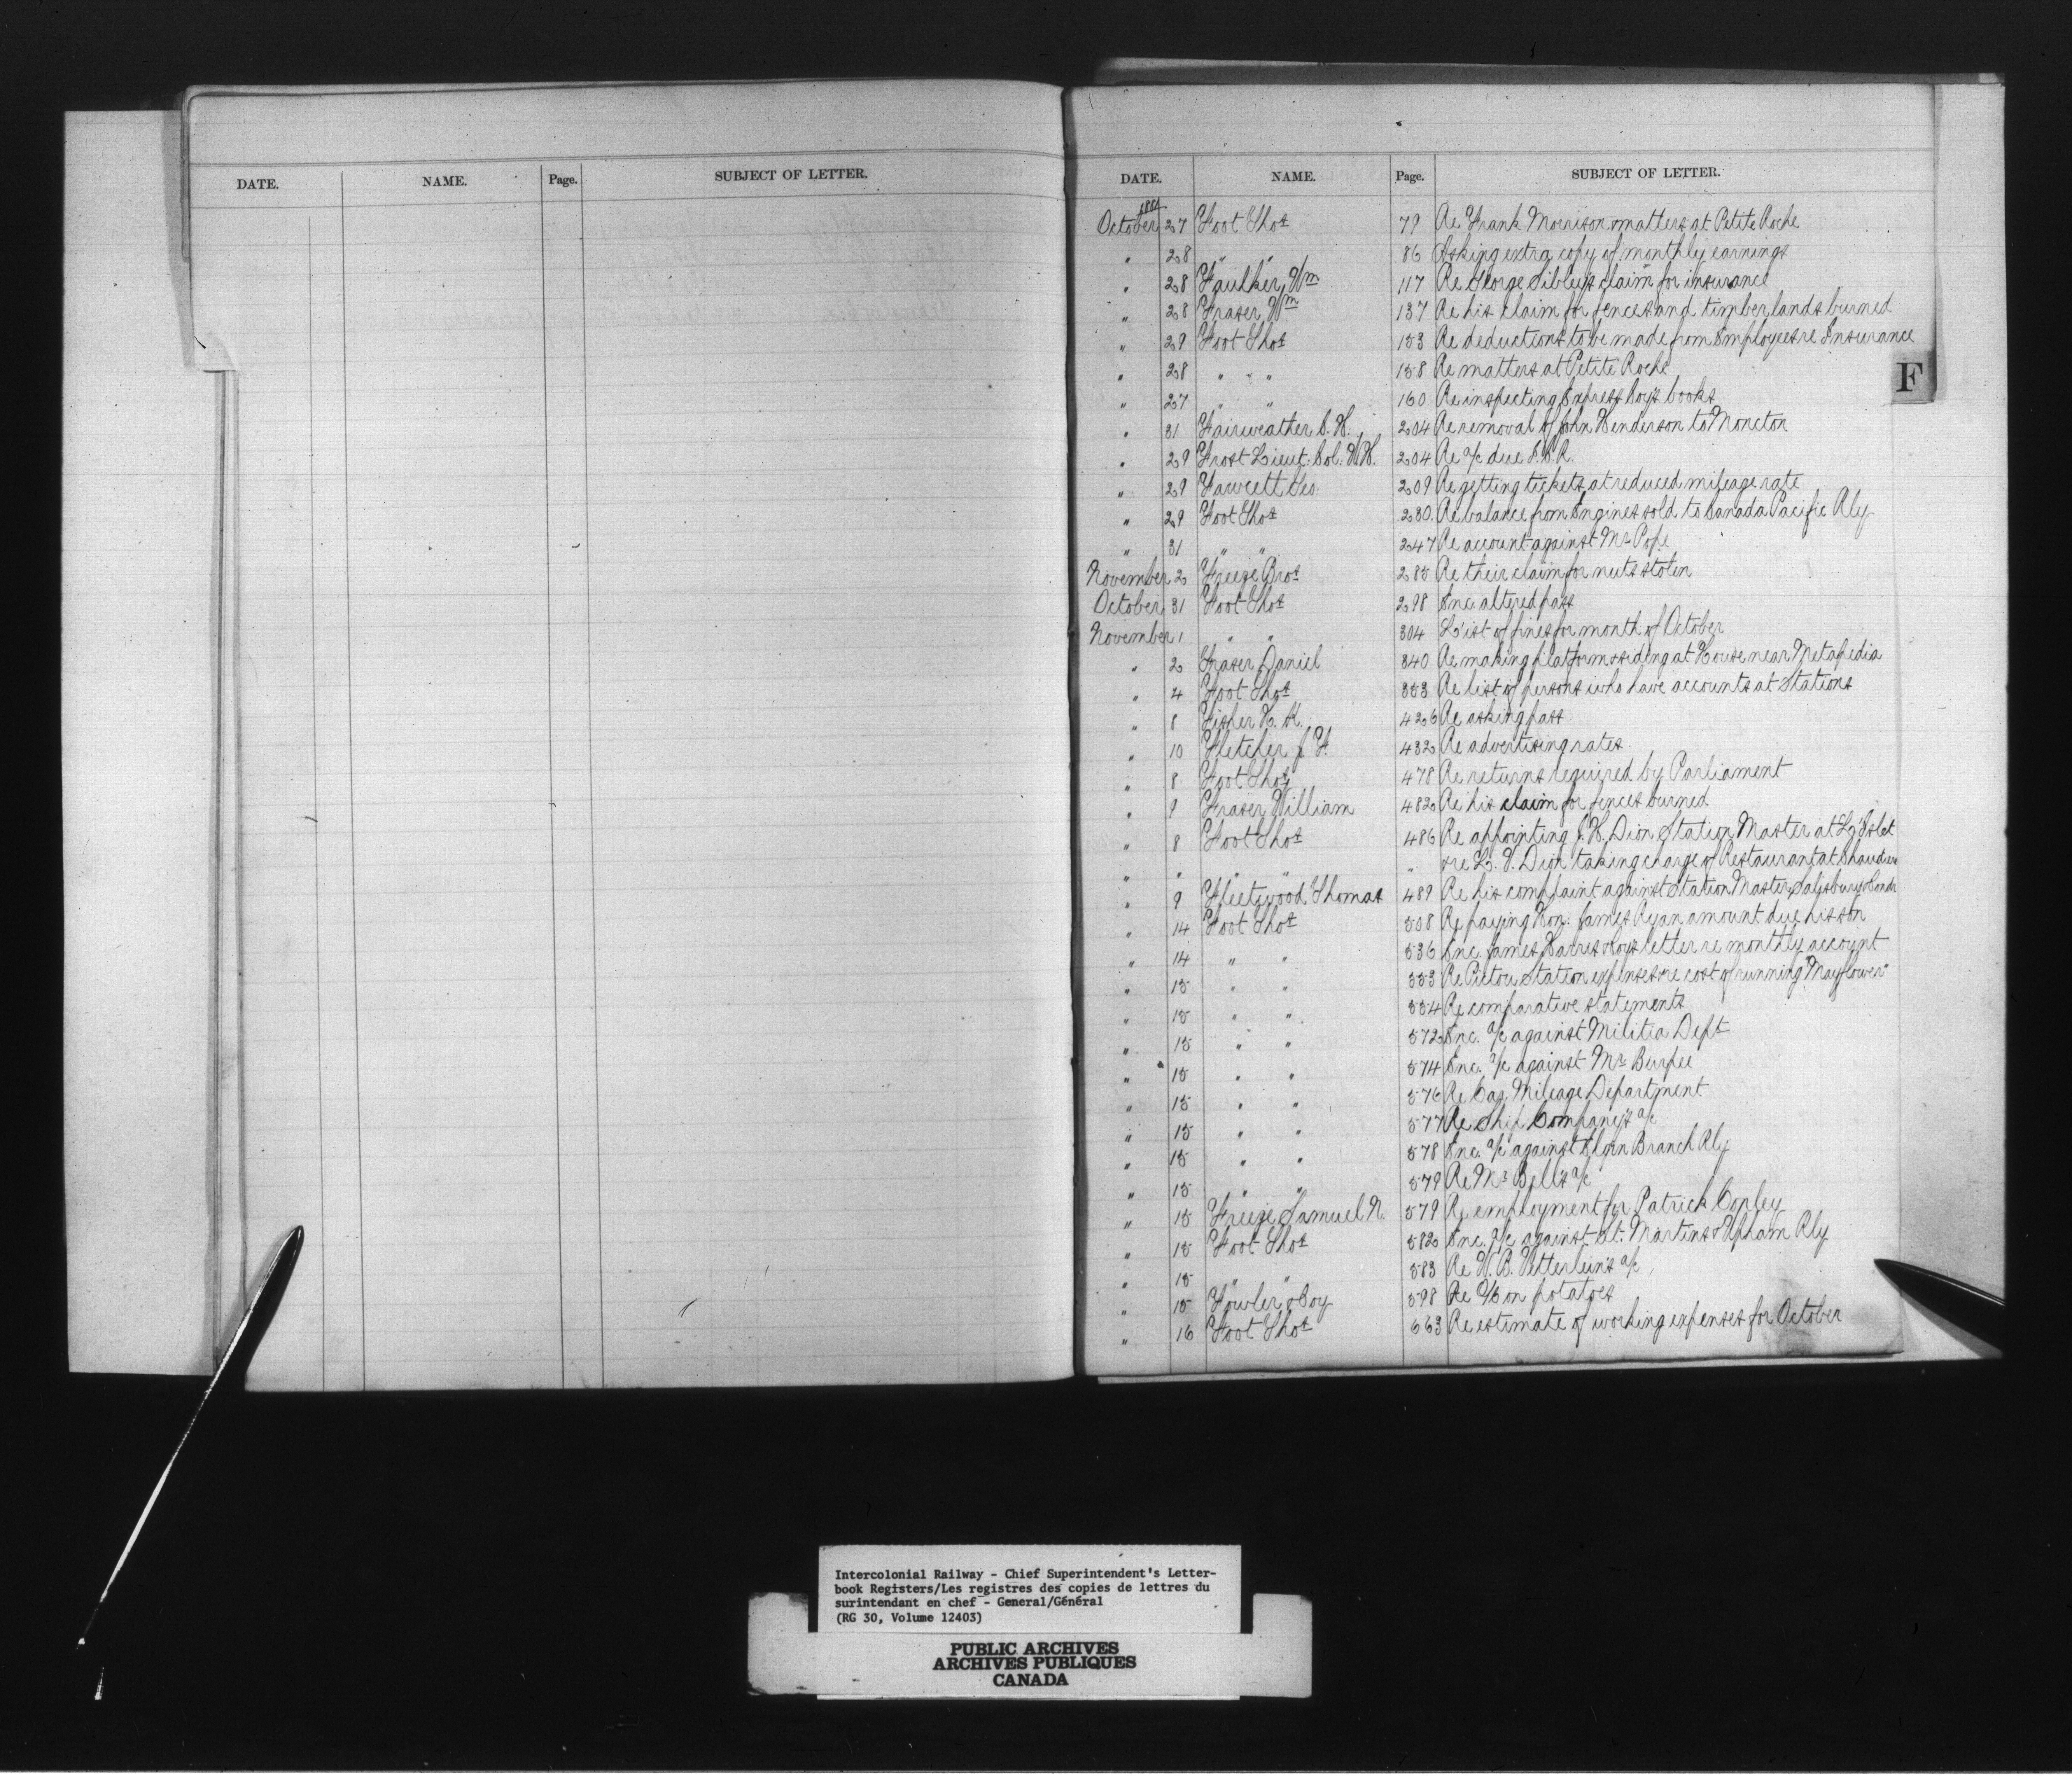 DATE. NAME. Page. SUBJECT OF LETTER.
DATE. NAME. Page. SUBJECT OF LETTER.
1881
October 27 Foot Thos 79 Re Frank Morrison & matters at Petite Roche
" 28 " " 86 Asking extra copy of monthly earnings
" 28 Faulkner Wm 117 Re George Sibley's claim for insurance
" 28 Fraser Wm 137 Re his claim for fences and timber lands burned
" 29 Foot Thos 153 Re deductions to be made from Employees re Insurance
" 28 " " " 158 Re matters at Petite Roche
" 27 " " 160 Re inspecting Express Coy's books
" 31 Fairweather C. H. 204 Re removal of John Henderson to Moncton
" 29 Frost Lieut. Col. 204 Re a/c due I.C.R.
" 29 Fawcett Geo. 209 Re getting tickets at reduced mileage rate
" 29 Foot Thos 230 Re balance from Engines sold to Canada Pacific Rly
" 31 " " 247 Re account against Mr Pope
November 2 Freeze Bros 285 Re their claim for nuts stolen
October 31 Foot Thos 298 Enc. altered pass
November 1 " " 304 List of fines for month of October
" 2 Fraser Daniel 340 Re making platform & siding at House near Metapedia
" 4 Foot Thos 353 Re list of persons who have accounts at Stations
" 8 Fisher 426 Re asking pass
" 10 Fletcher J. F. 432 Re advertising rates
" 8 Foot Thos 478 Re returns required by Parliament
" 9 Fraser William 482 Re his claim for fences burned
" 8 Foot Thos 486 Re appointing J. H. Dion Station Master at L'Islet
" " " " " & re L. V. Dion taking charge of Restaurant at Chaudiere
" 9 Fleetwood Thomas 489 Re his complaint against Station Master Salisbury & Condr
" 14 Foot Thos 508 Re paying Hon. James Ryan amount due his son
" 14 " " 536 Enc. James Harris & Coys letter re monthly account
" 15 " " 553 Re Pictou Station expenses & re cost of running "Mayflower"
" 15 " " 554 Re comparative statements
" 15 " " 572 Enc. a/c against Militia Dept
" 15 " " 574 Enc. a/c against Mr Burpee
" 15 " " 576 Re Car Mileage Department
" 15 " " 577 Re Ship Company's a/c
" 15 " " 578 Enc. a/c against Elgin Branch Rly
" 15 " " 579 Re Mr Bell's a/c
" 15 Freeze Samuel N. 579 Re employment for Patrick Conley
" 15 Foot Thos 582 Enc. a/c against St. Martins & Upham Rly
" 15 " " 583 Re a/c
" 15 Fowler & Coy 598 Re O/C on potatoes
" 16 Foot Thos 663 Re estimate of working expenses for October
F
Intercolonial Railway - Chief Superintendent's Letter-
book Registers/Les registres des copies de lettres du
surintendant en chef - General/Général
(RG 30, Volume 12403)
PUBLIC ARCHIVES
ARCHIVES PUBLIQUES
CANADA